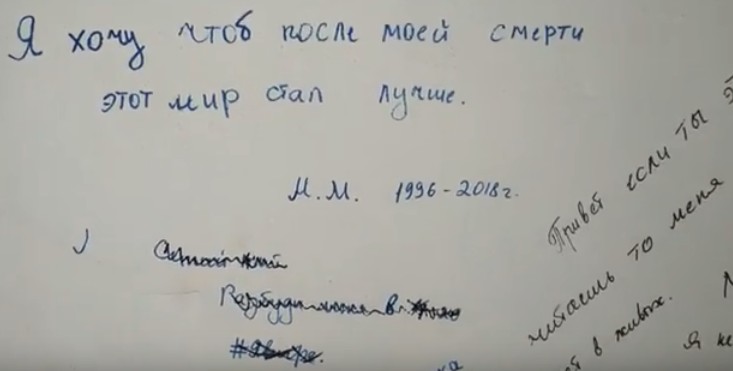 Я хочу чтоб после моей смерти
этот мир стал лучше.
М.М. 1996-2018г.
Разбуди меня в
Привет если ты
читаешь то меня
в живых.
Я не